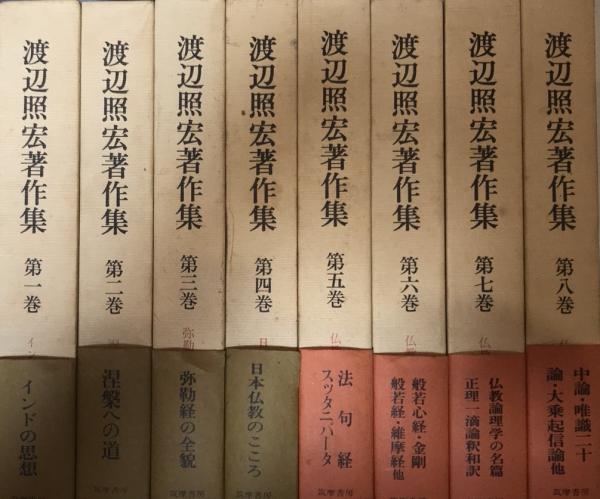 渡辺照宏著作集 第一巻
イン
インドの思想
渡辺照宏著作集 第二巻
涅槃への道
渡辺照宏著作集 第三巻
弥勒
弥勒経の全貌
筑摩書房
渡辺照宏著作集 第四巻
日
日本仏教のこころ
筑摩書房
渡辺照宏著作集 第五巻
仏
法句経
スッタニパータ
筑摩書房
渡辺照宏著作集 第六巻
仏教
般若心経・金剛
般若経・維摩経他
筑摩書房
渡辺照宏著作集 第七巻
仏教
仏教論理学の名篇
正理一滴論釈和訳
筑摩書房
渡辺照宏著作集 第八巻
仏
中論・唯識二十
論・大乗起信論他
筑摩書房